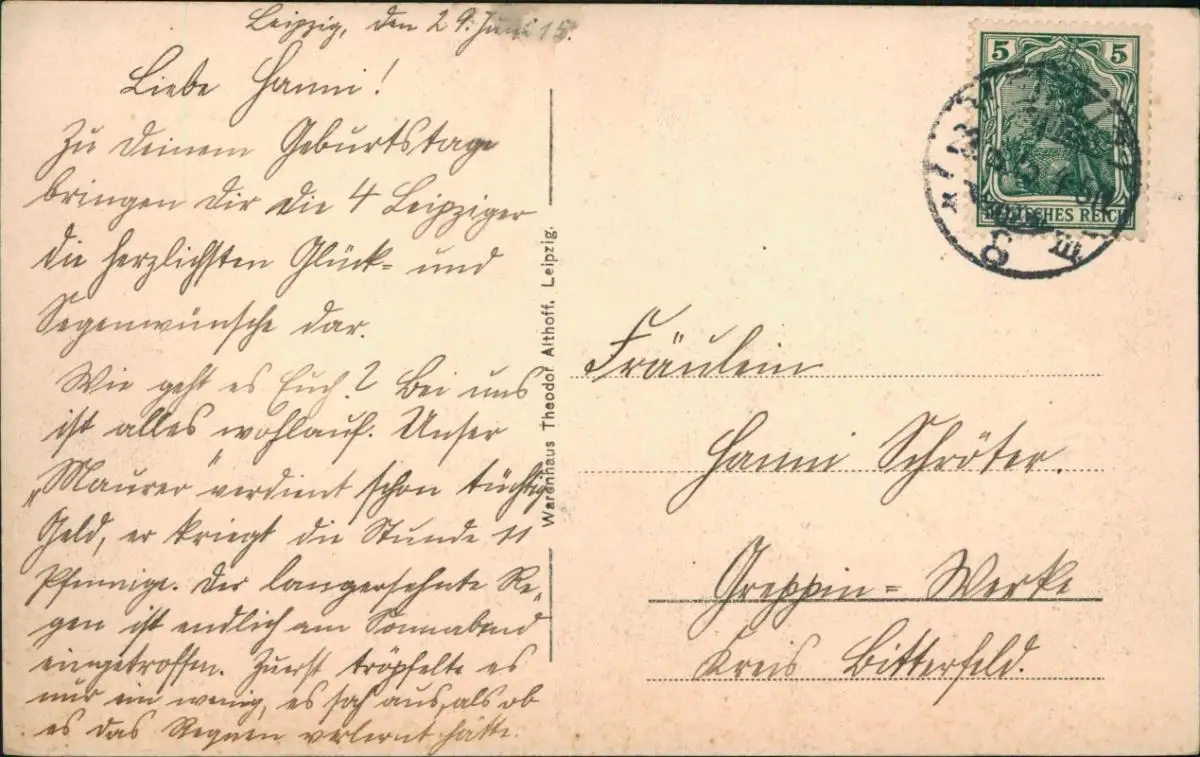 Leipzig, den 29. Juni 15.
Liebe Hanni!
Zu deinem Geburtstage
bringen dir die 4 Leipziger
die herzlichsten Glück- und
Segenwünsche dar.
Wie geht es Euch? Bei uns
ist alles wohlauf. Unser
„Maurer" verdient schon tüchtig
Geld, er kriegt die Stunde 11
Pfennige. Der langersehnte Re-
gen ist endlich am Sonnabend
eingetroffen. Zuerst tröpfelte es
nur ein wenig, es sah aus, als ob
es das Regnen verlernt hätte.
Warenhaus Theodor Althoff, Leipzig.
5 5
DEUTSCHES REICH
8 III
Fräulein
Hanni Schröter.
Greppin-Werke
Kreis Bitterfeld.